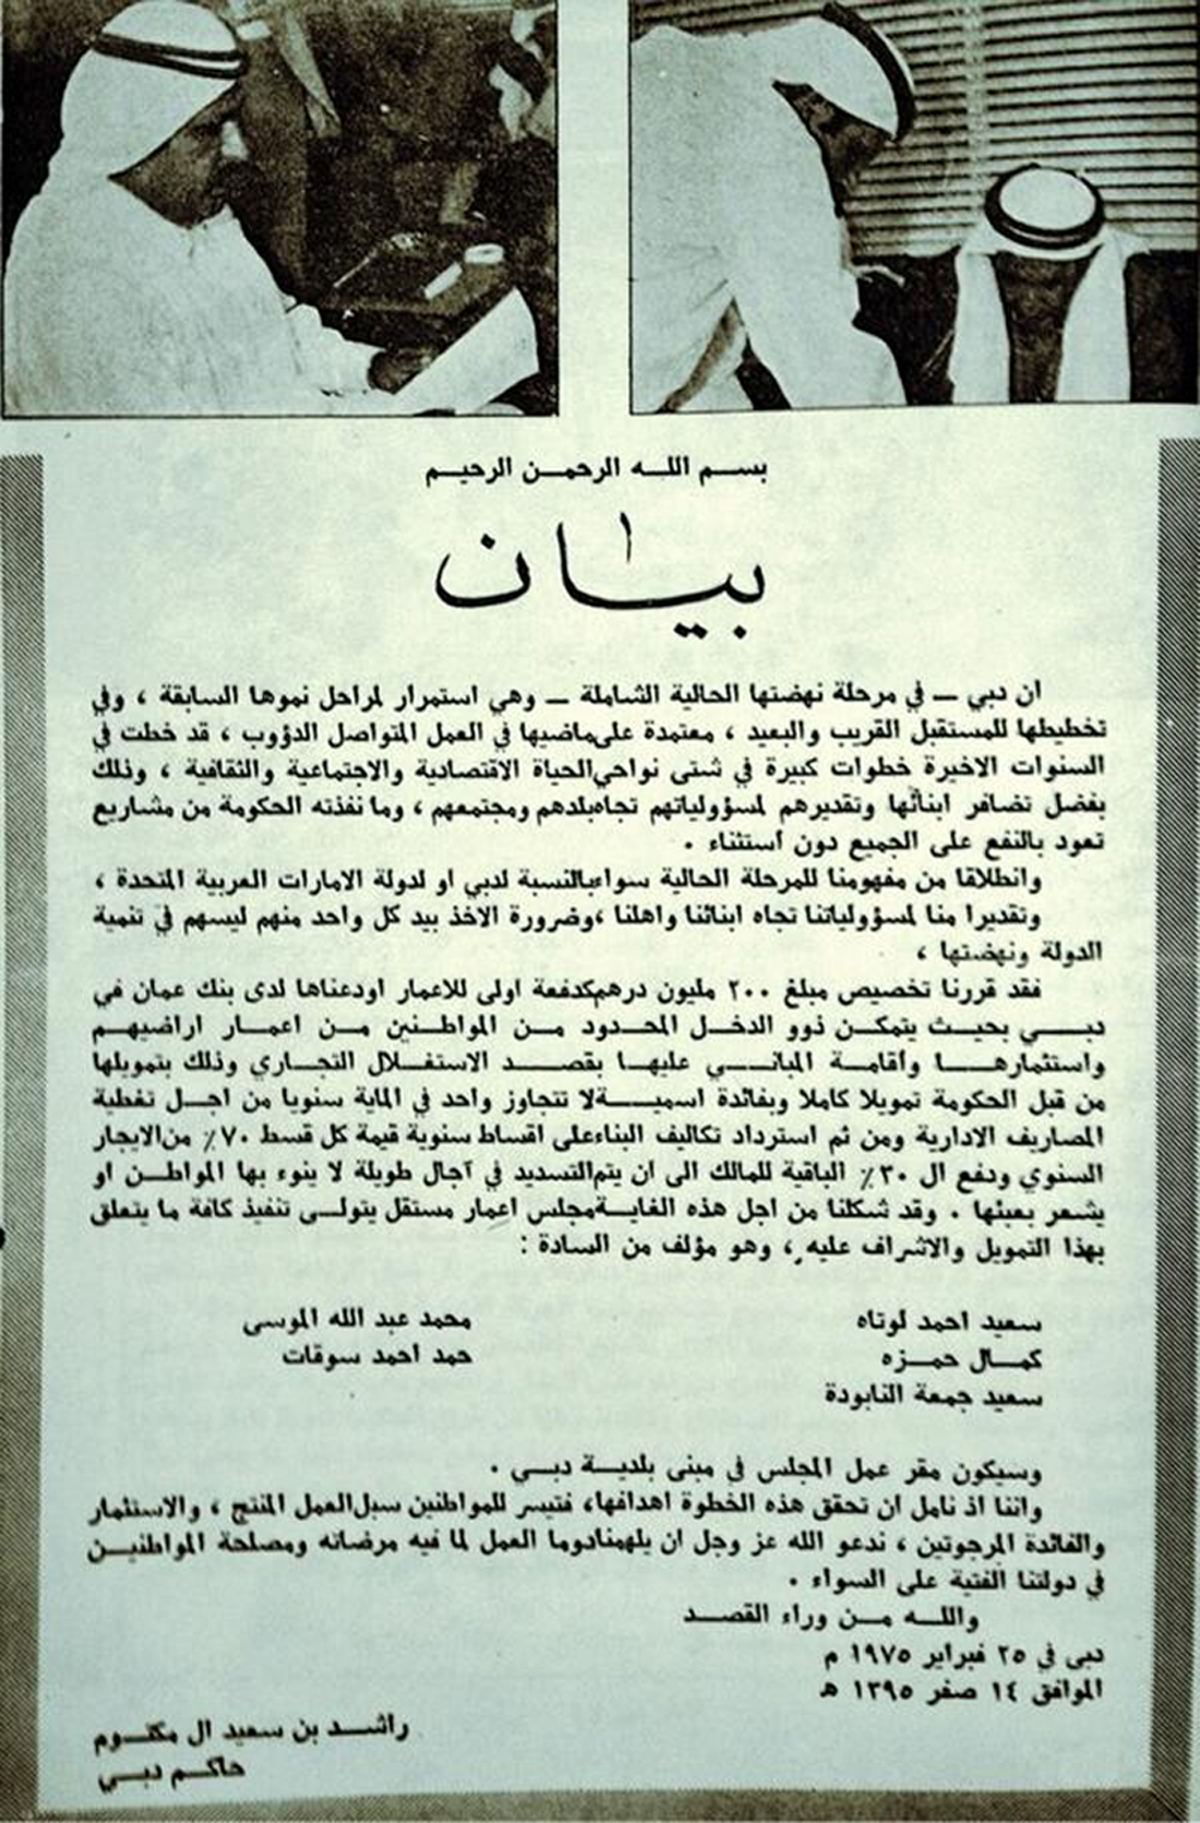 بسم الله الرحمن الرحيم
بيان
ان دبي — في مرحلة نهضتها الحالية الشاملة — وهي استمرار لمراحل نموها السابقة ، وفي
تخطيطها للمستقبل القريب والبعيد ، معتمدة على ماضيها في العمل المتواصل الدؤوب ، قد خطت في
السنوات الاخيرة خطوات كبيرة في شتى نواحي الحياة الاقتصادية والاجتماعية والثقافية ، وذلك
بفضل تضافر ابنائها وتقديرهم لمسؤولياتهم تجاه بلدهم ومجتمعهم ، وما نفذته الحكومة من مشاريع
تعود بالنفع على الجميع دون استثناء .
وانطلاقا من مفهومنا للمرحلة الحالية سواء بالنسبة لدبي او لدولة الامارات العربية المتحدة ،
وتقديرا منا لمسؤولياتنا تجاه ابنائنا واهلنا ، وضرورة الاخذ بيد كل واحد منهم ليسهم في تنمية
الدولة ونهضتها ،
فقد قررنا تخصيص مبلغ ٢٠٠ مليون درهم كدفعة اولى للاعمار اودعناها لدى بنك عمان في
دبي بحيث يتمكن ذوو الدخل المحدود من المواطنين من اعمار اراضيهم
واستثمارها وأقامة المباني عليها بقصد الاستغلال التجاري وذلك بتمويلها
من قبل الحكومة تمويلا كاملا وبفائدة اسمية لا تتجاوز واحد في الماية سنويا من اجل تغطية
المصاريف الادارية ومن ثم استرداد تكاليف البناء على اقساط سنوية قيمة كل قسط ٧٠٪ من الايجار
السنوي ودفع ال ٣٠٪ الباقية للمالك الى ان يتم التسديد في آجال طويلة لا ينوء بها المواطن او
يشعر بعبئها . وقد شكلنا من اجل هذه الغاية مجلس اعمار مستقل يتولى تنفيذ كافة ما يتعلق
بهذا التمويل والاشراف عليه ، وهو مؤلف من السادة :
سعيد احمد لوتاه محمد عبد الله الموسى
كمال حمزه حمد احمد سوقات
سعيد جمعة النابودة
وسيكون مقر عمل المجلس في مبنى بلدية دبي .
واننا اذ نامل ان تحقق هذه الخطوة اهدافها، فتيسر للمواطنين سبل العمل المنتج ، والاستثمار
والفائدة المرجوتين ، ندعو الله عز وجل ان يلهمنا دوما العمل لما فيه مرضاته ومصلحة المواطنين
في دولتنا الفتية على السواء .
والله من وراء القصد
دبى في ٢٥ فبراير ١٩٧٥ م
الموافق ١٤ صفر ١٣٩٥ هـ
راشد بن سعيد ال مكتوم
حاكم دبي